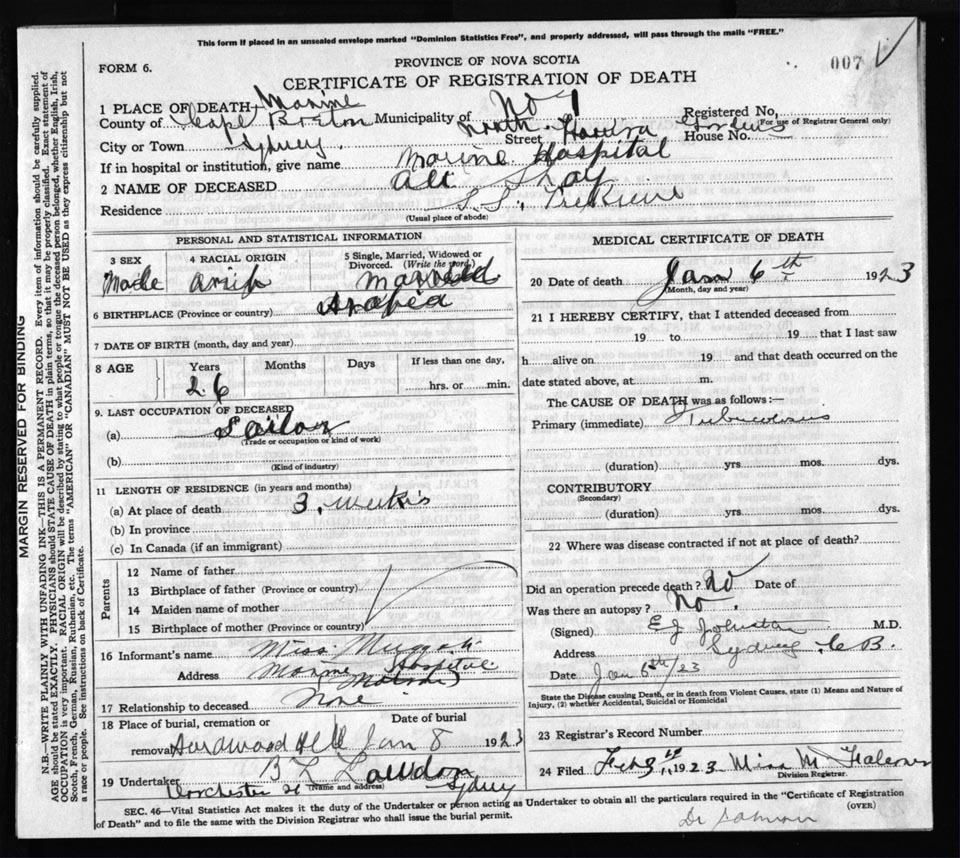 This form if placed in an unsealed envelope marked "Dominion Statistics Free", and properly addressed, will pass through the mails "FREE."
FORM 6.
PROVINCE OF NOVA SCOTIA
007
CERTIFICATE OF REGISTRATION OF DEATH
1 PLACE OF DEATH Marine
County of Cape Breton Municipality of No 1 Registered No.
(For use of Registrar General only)
City or Town Sydney. Street North House No.
If in hospital or institution, give name Marine Hospital
2 NAME OF DECEASED Ali Shay
Residence S.S.
(Usual place of abode)
PERSONAL AND STATISTICAL INFORMATION
3 SEX Male 4 RACIAL ORIGIN 5 Single, Married, Widowed or Divorced. (Write the word.) Married
6 BIRTHPLACE (Province or country) Arabia
7 DATE OF BIRTH (month, day and year)
8 AGE Years Months Days If less than one day,
26 hrs. or min.
9. LAST OCCUPATION OF DECEASED
(a) Sailor
(Trade or occupation or kind of work)
(b)
(Kind of industry)
11 LENGTH OF RESIDENCE (in years and months)
(a) At place of death 3. weeks
(b) In province
(c) In Canada (if an immigrant)
Parents
12 Name of father
13 Birthplace of father (Province or country)
14 Maiden name of mother
15 Birthplace of mother (Province or country)
16 Informant's name Miss
Address Marine Hospital
Matron
17 Relationship to deceased None
18 Place of burial, cremation or Date of burial
removal Hardwood Hill Jan 8 1923
19 Undertaker B L Lawdon
(Name and address)
Dorchester St Sydney
MEDICAL CERTIFICATE OF DEATH
20 Date of death Jan 6th 1923
(Month, day and year)
21 I HEREBY CERTIFY, that I attended deceased from
19 to 19 that I last saw
h alive on 19 and that death occurred on the
date stated above, at m.
The CAUSE OF DEATH was as follows:-
Primary (immediate) Tuberculosis
(duration) yrs. mos. dys.
CONTRIBUTORY
(Secondary)
(duration) yrs. mos. dys.
22 Where was disease contracted if not at place of death?
Did an operation precede death? No Date of
Was there an autopsy? No.
(Signed) E J Johnston M.D.
Address Sydney, C B.
Date Jan 6th/23
State the Disease causing Death, or in death from Violent Causes, state (1) Means and Nature of
Injury, (2) whether Accidental, Suicidal or Homicidal
23 Registrar's Record Number
24 Filed Feb 1923 Miss M
Division Registrar.
SEC. 46—Vital Statistics Act makes it the duty of the Undertaker or person acting as Undertaker to obtain all the particulars required in the "Certificate of Registration
of Death" and to file the same with the Division Registrar who shall issue the burial permit.
(OVER)
MARGIN RESERVED FOR BINDING
N.B.—WRITE PLAINLY WITH UNFADING INK—THIS IS A PERMANENT RECORD. Every item of information should be carefully supplied.
AGE should be stated EXACTLY. PHYSICIANS should STATE CAUSE OF DEATH in plain terms, so that it may be properly classified. Exact statement of
OCCUPATION is very important. RACIAL ORIGIN will be described by stating to what people or tongue the deceased person belonged, whether English, Irish,
Scotch, French, German, Russian, Ruthenian, etc. The terms "AMERICAN" OR "CANADIAN" MUST NOT BE USED as they express citizenship but not
a race or people. See instructions on back of Certificate.